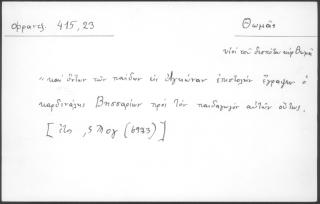 Φραντζ. 415, 23
Θωμᾶς
υἱοὶ τοῦ δεσπότου κὺρ Θωμᾶ
"καὶ ὄντων τῶν παίδων εἰς Ἀγκῶναν ἐπιστολὴν ἔγραψεν ὁ
καρδινάλης Βησσαρίων πρὸς τὸν παιδαγωγὸν αὐτῶν οὕτως.
[ ἔτ. ͵ϛϠογ (6973) ]